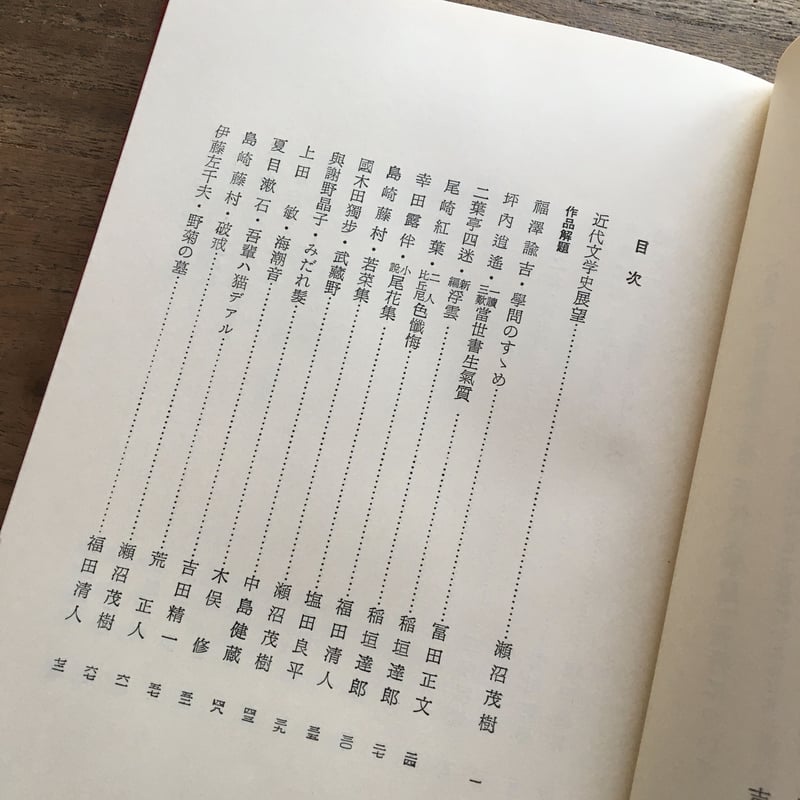 目次
近代文学史展望……瀬沼茂樹 一
作品解題
福澤諭吉・學問のすゝめ……富田正文 二四
坪内逍遙・一讀三歎當世書生氣質……稲垣達郎 二七
二葉亭四迷・新編浮雲……稲垣達郎 三〇
尾崎紅葉・二人比丘尼色懺悔……福田清人 三五
幸田露伴・小説尾花集……塩田良平 三九
島崎藤村・若菜集……瀬沼茂樹 四三
國木田獨步・武蔵野……中島健蔵 四八
與謝野晶子・みだれ髪……木俣修 五三
上田敏・海潮音……吉田精一 五七
夏目漱石・吾輩ハ猫デアル……荒正人 六一
島崎藤村・破戒……瀬沼茂樹 六七
伊藤左千夫・野菊の墓……福田清人 七三